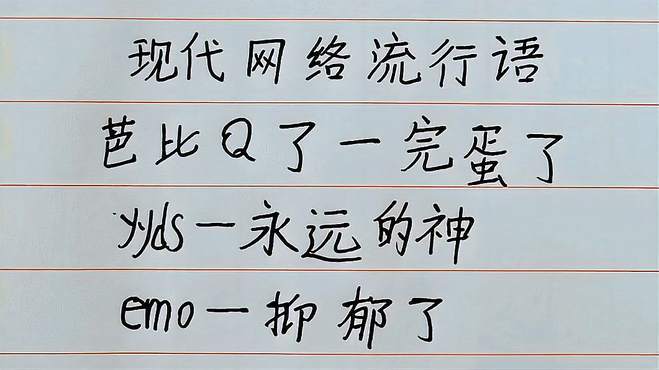 现代网络流行语
芭比Q了一完蛋了
yyds一永远的神
emo一抑郁了